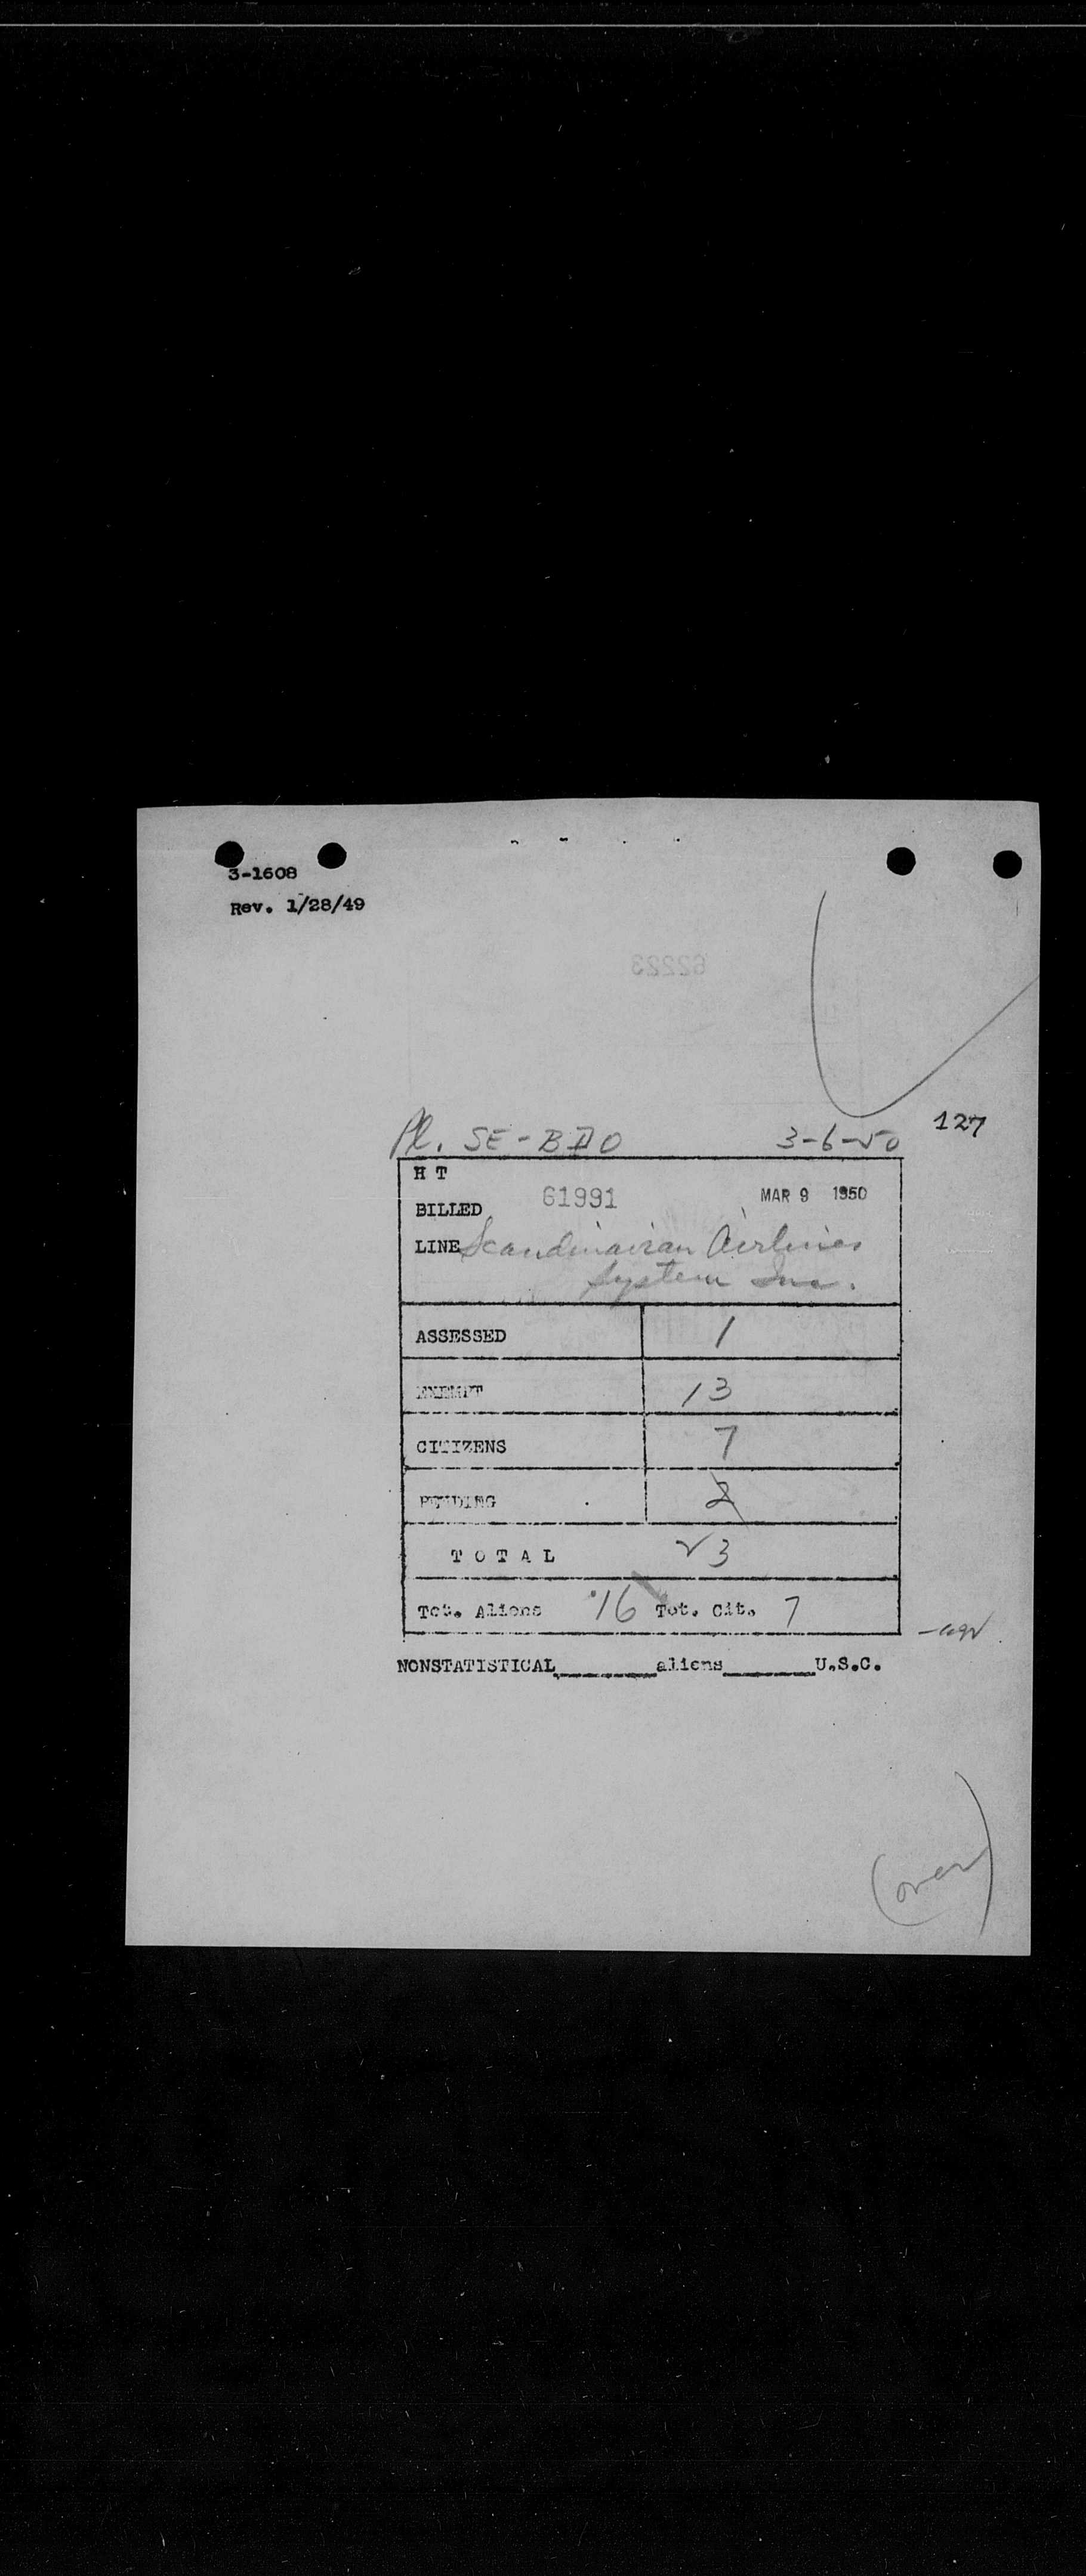 3-1608
Rev. 1/28/49
62223
127
Pl. SE-BDO 3-6-50
H T
BILLED 61991 MAR 9 1950
LINE Scandinavian Airlines
System Inc.
ASSESSED 1
EXEMPT 13
CITIZENS 7
PENDING 2
TOTAL 23
Tot. Aliens 16 Tot. Cit. 7
NONSTATISTICAL aliens U.S.C.
(over)